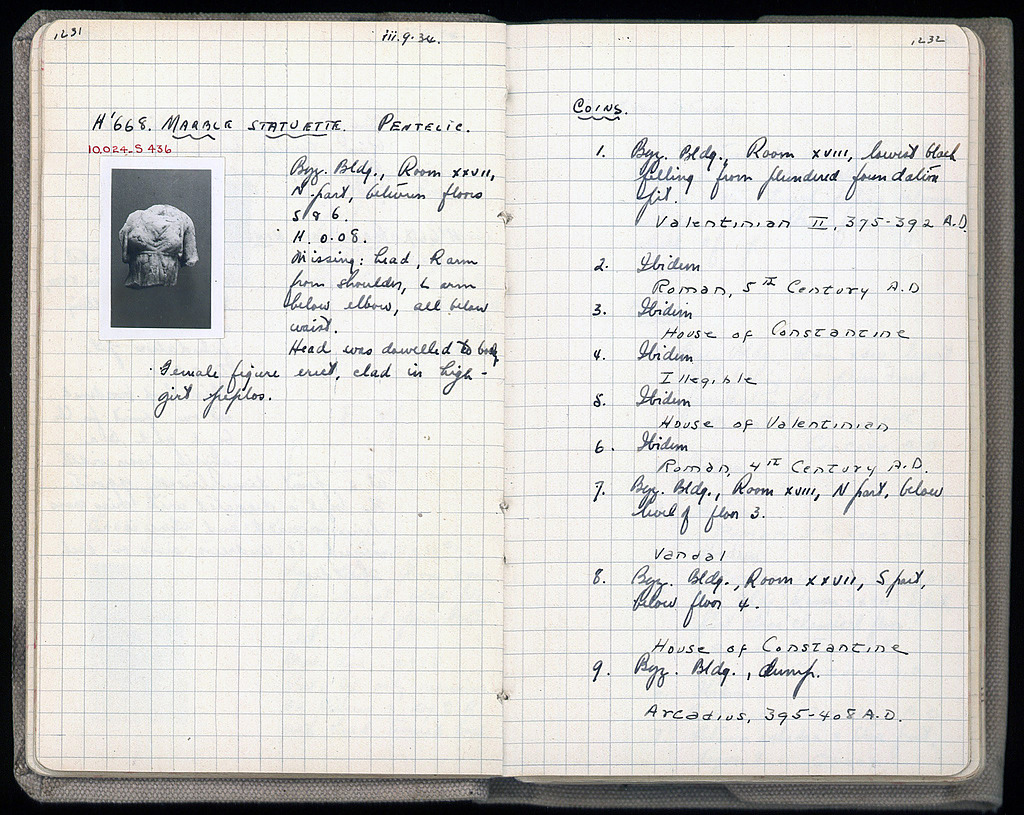 1231
iii.9.34.
H'668. MARBLE STATUETTE. PENTELIC.
10,024-S 436
Byz. Bldg., Room xxvii,
N part, between floors
5 & 6.
H. 0.08.
Missing: head, R arm
from shoulder, L arm
below elbow, all below
waist.
Head was dowelled to body
Female figure erect, clad in high-
girt peplos.
1232
COINS.
1. Byz. Bldg., Room xviii, lowest black
filling from plundered foundation
pit.
Valentinian II, 375-392 A.D.
2. Ibidem
Roman, 5th Century A.D
3. Ibidem
House of Constantine
4. Ibidem
Illegible
5. Ibidem
House of Valentinian
6. Ibidem
Roman, 4th Century A.D.
7. Byz. Bldg., Room xviii, N part, below
level of floor 3.
Vandal
8. Byz. Bldg., Room xxvii, S part,
below floor 4.
House of Constantine
9. Byz. Bldg., dump.
Arcadius, 395-408 A.D.